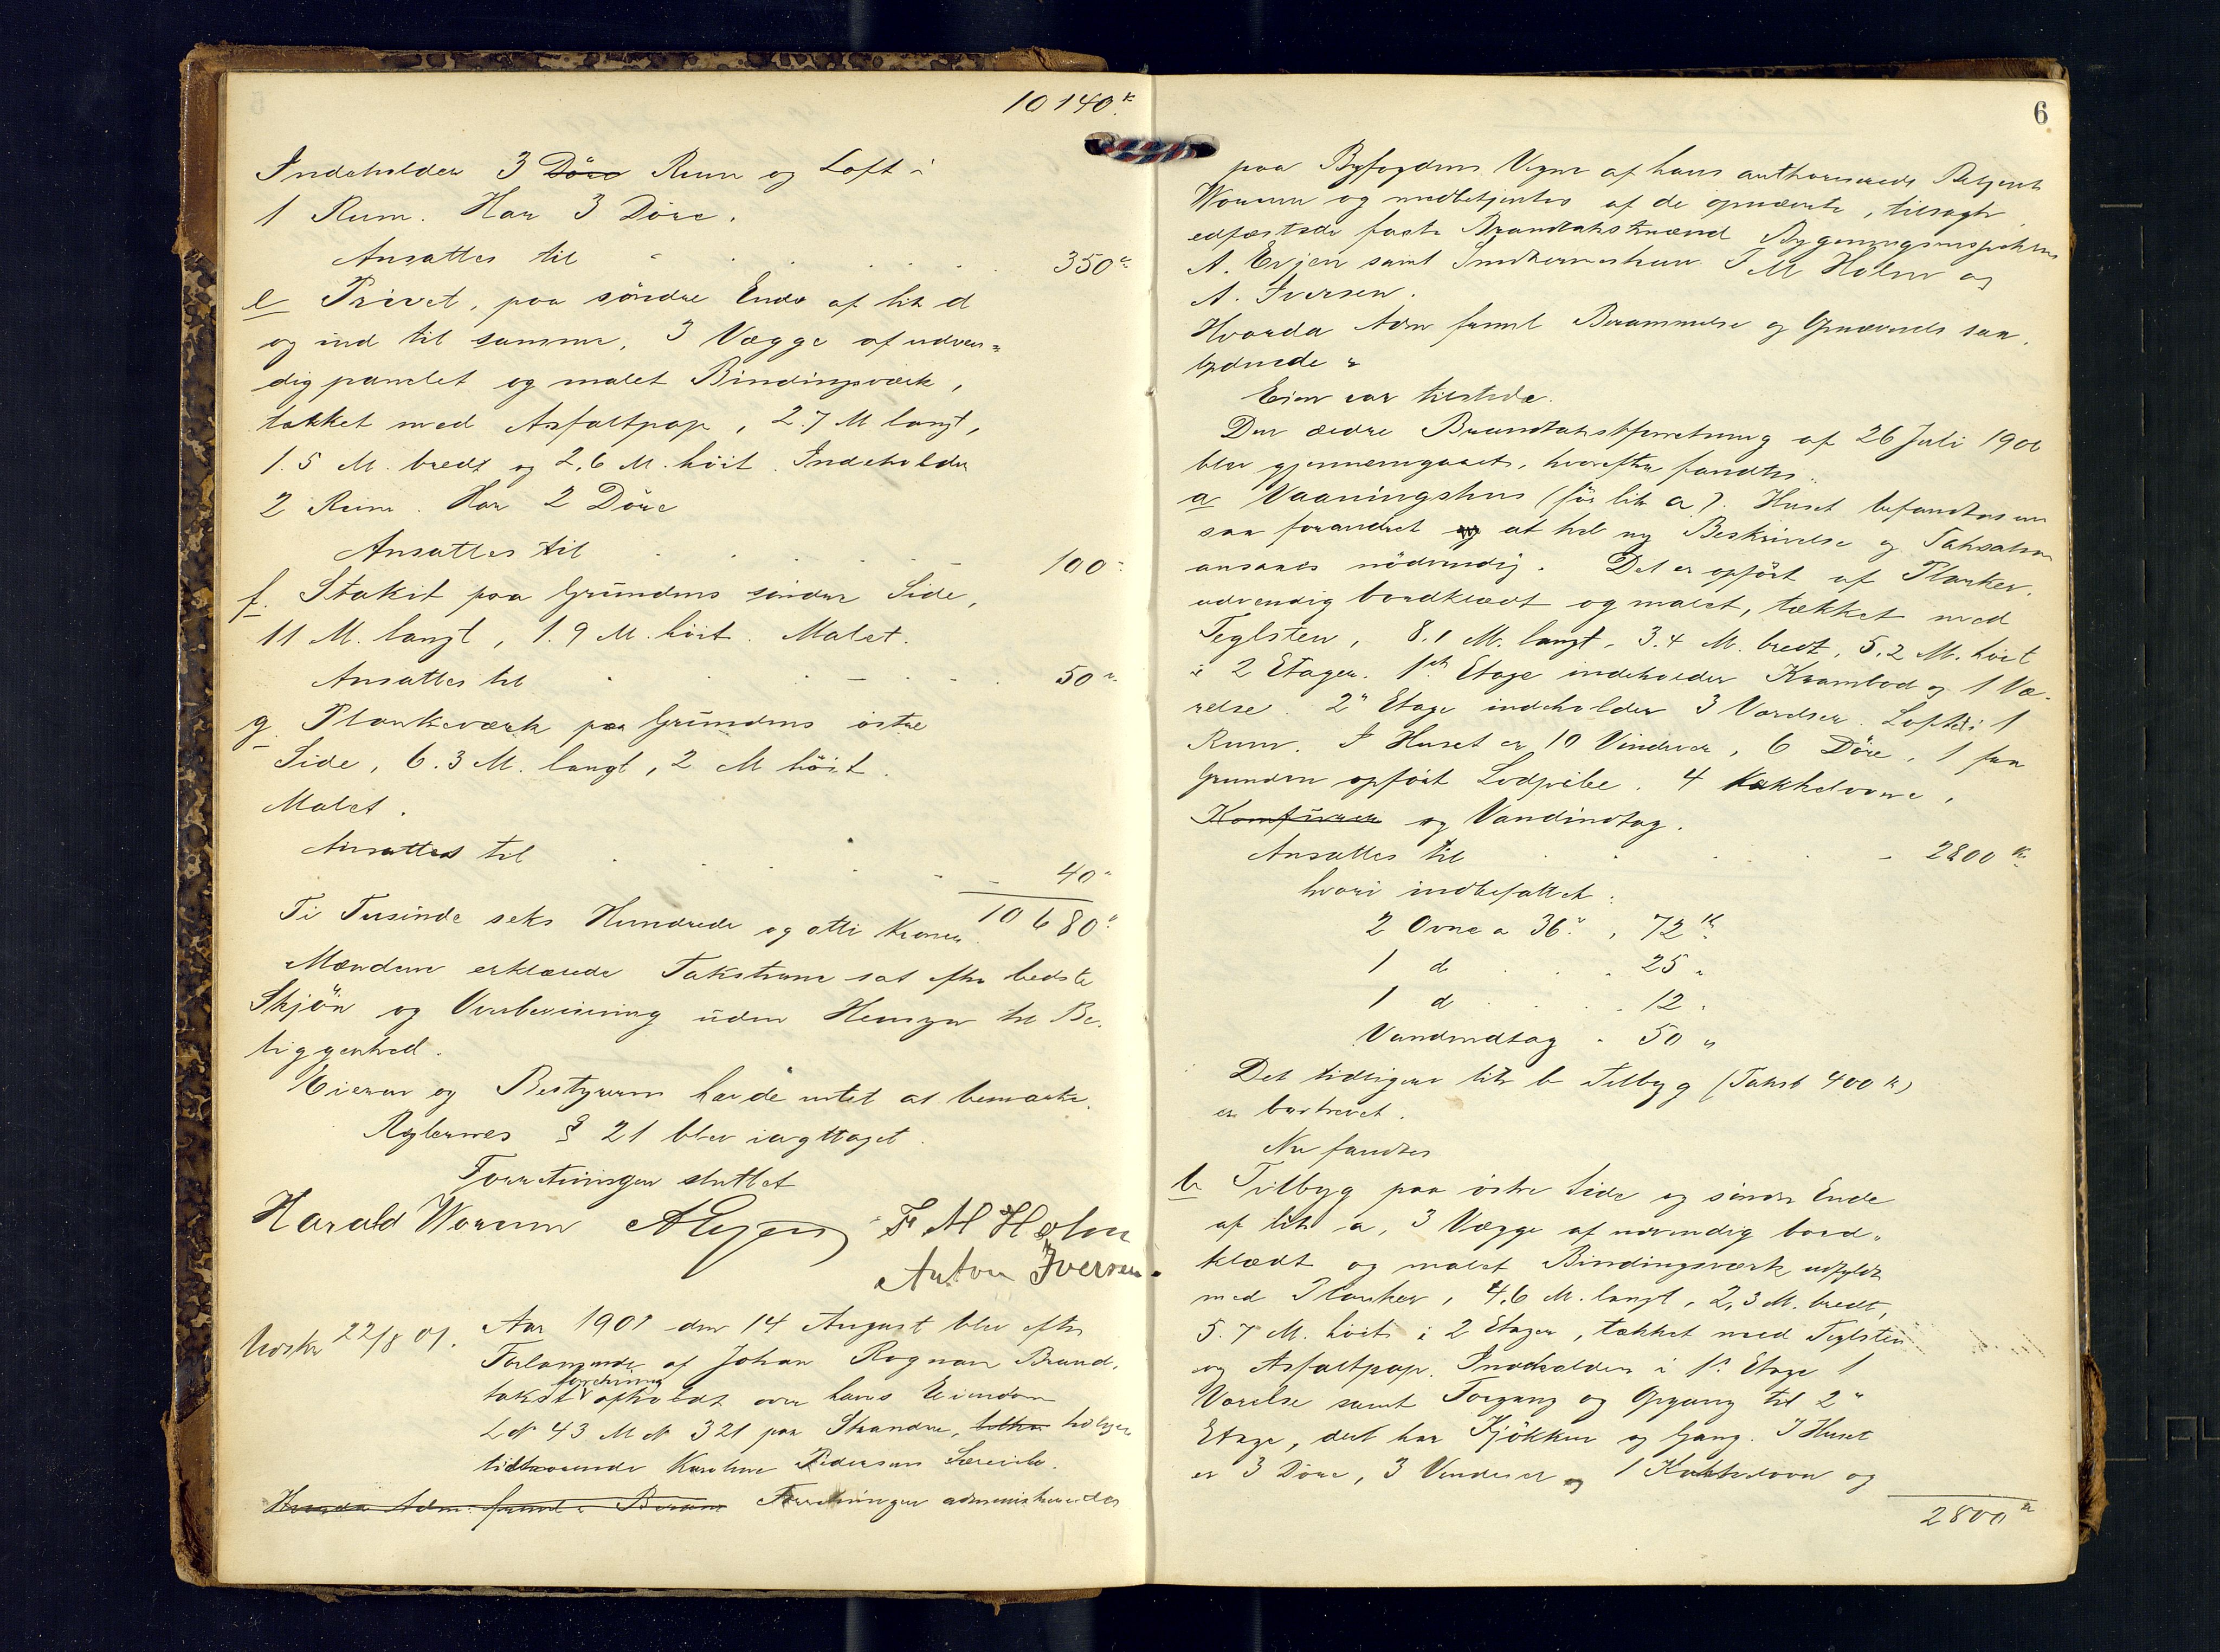 10140 k
Indeholder 3 Döre Rum og Loft i
1 Rum. Har 3 Döre.
Ansattes til 350 "
e Privet, paa söndre Ende af litr d
og ind til samme, 3 Vægge af udven=
dig panelet og malet Bindingsværk,
tækket med Asfaltpap, 2.7 M langt,
1.5 M. bredt og 2,6 M. höit. Indeholder
2 Rum. Har 2 Döre
Ansattes til 100 "
f. Stakit paa Grundens söndre Side,
11 M. langt, 1.9 M. höit. Malet.
Ansattes til 50 "
g. Plankeværk paa Grundens östre
Side, 6.3 M. langt, 2 M höit.
Malet.
Ansattes til 40 "
Ti Tusinde seks Hundrede og otti Kroner. 10680 "
Mændene erklærede Taksterne sat efter bedste
Skjön og Overbevisning uden Hensyn til Be-
liggenhed.
Eieren og Bestyreren havde intet at bemærke.
Reglernes § 21 blev iagttaget.
Forretningen sluttet
Harald Worum A Evjen F M Holm
Anton Iversen.
Udskr 22/8 01. Aar 1901 den 14 August blev efter
Forlangende af Johan Rognan Brand-
takst forretning afholdt over hans Eiendom
L N 43 M N 321 paa Strandne, tilhører
tidligere
tilhørende Karoline Pedersen
Hvorda Adm. freml. Beram Forretningen administreredes
6
paa Byfogdens Vegne af hans authoriserede Betjent
Worum og medbetjentes af de opnævnte, tilsagte
edfæstede faste Brandtakstmænd Bygningsinspektør
A. Evjen samt Snedkermestrene F M Holm og
A. Iversen.
Hvorda Adm freml Berammelse og Opnævnelse saa
lydende "
Eieren var tilstede.
Den ældre Brandtakstforretning af 26 Juli 1900
blev gjennemgaaet, hvorefter fandtes.
a Vaaningshus (før litr a). Huset befandtes nu
saa forandret og at hel ny Beskrivelse og Taksation
ansaaes nödvendig. Det er opfört af Planker,
udvendig bordklædt og malet, tækket med
Teglsten, 8.1 M. langt, 3.4 M. bredt, 5.2 M. höit
i 2 Etager. 1ste Etage indeholder Krambod og 1 Væ-
relse. 2" Etage indeholder 3 Værelser. Loftet 1
Rum. I Huset er 10 Vinduer, 6 Döre, 1 fra
Grunden opfört Lodpibe, 4 Kakkelovne,
Komfurer og Vandindtag.
Ansattes til 2800 k
hvori indbefattet:
2 Ovne a 36 " 72 k
1 d 25 "
1 d 12 "
Vandindtag 50 "
Det tidligere litr b Tilbyg (Takst 400 k)
er bortrevet.
Nu fandtes
b Tilbyg paa östre Side og söndre Ende
af litr a, 3 Vægge af udvendig bord-
klædt og malet Bindingsværk udfyldt
med Planker, 4,6 M. langt, 2,3 M. bredt,
5.7 M. höit i 2 Etager, tækket med Teglsten
og Asfaltpap. Indeholder i 1ste Etage 1
Værelse samt Forgang og Opgang til 2"
Etage, der har Kjökken og Gang. I Huset
er 3 Döre, 3 Vinduer og 1 Kakkelovn og
2800 k